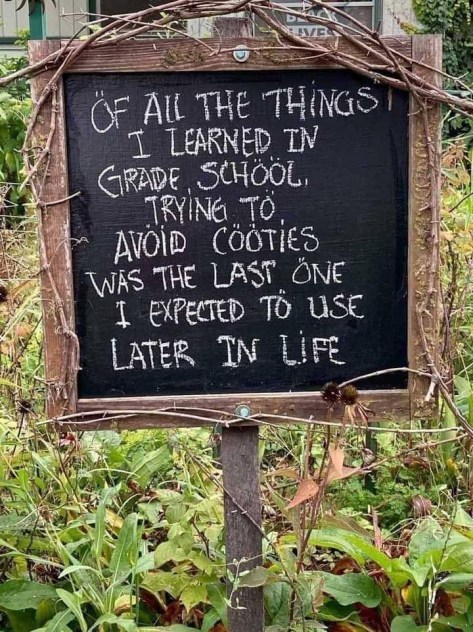 LIVES
ÖF ALL THE THINGS
I LEARNED IN
GRADE SCHÖÖL,
TRYING TÖ
AVÖID CÖÖTIES
WAS THE LAST ÖNE
I EXPECTED TÖ USE
LATER IN LIFE